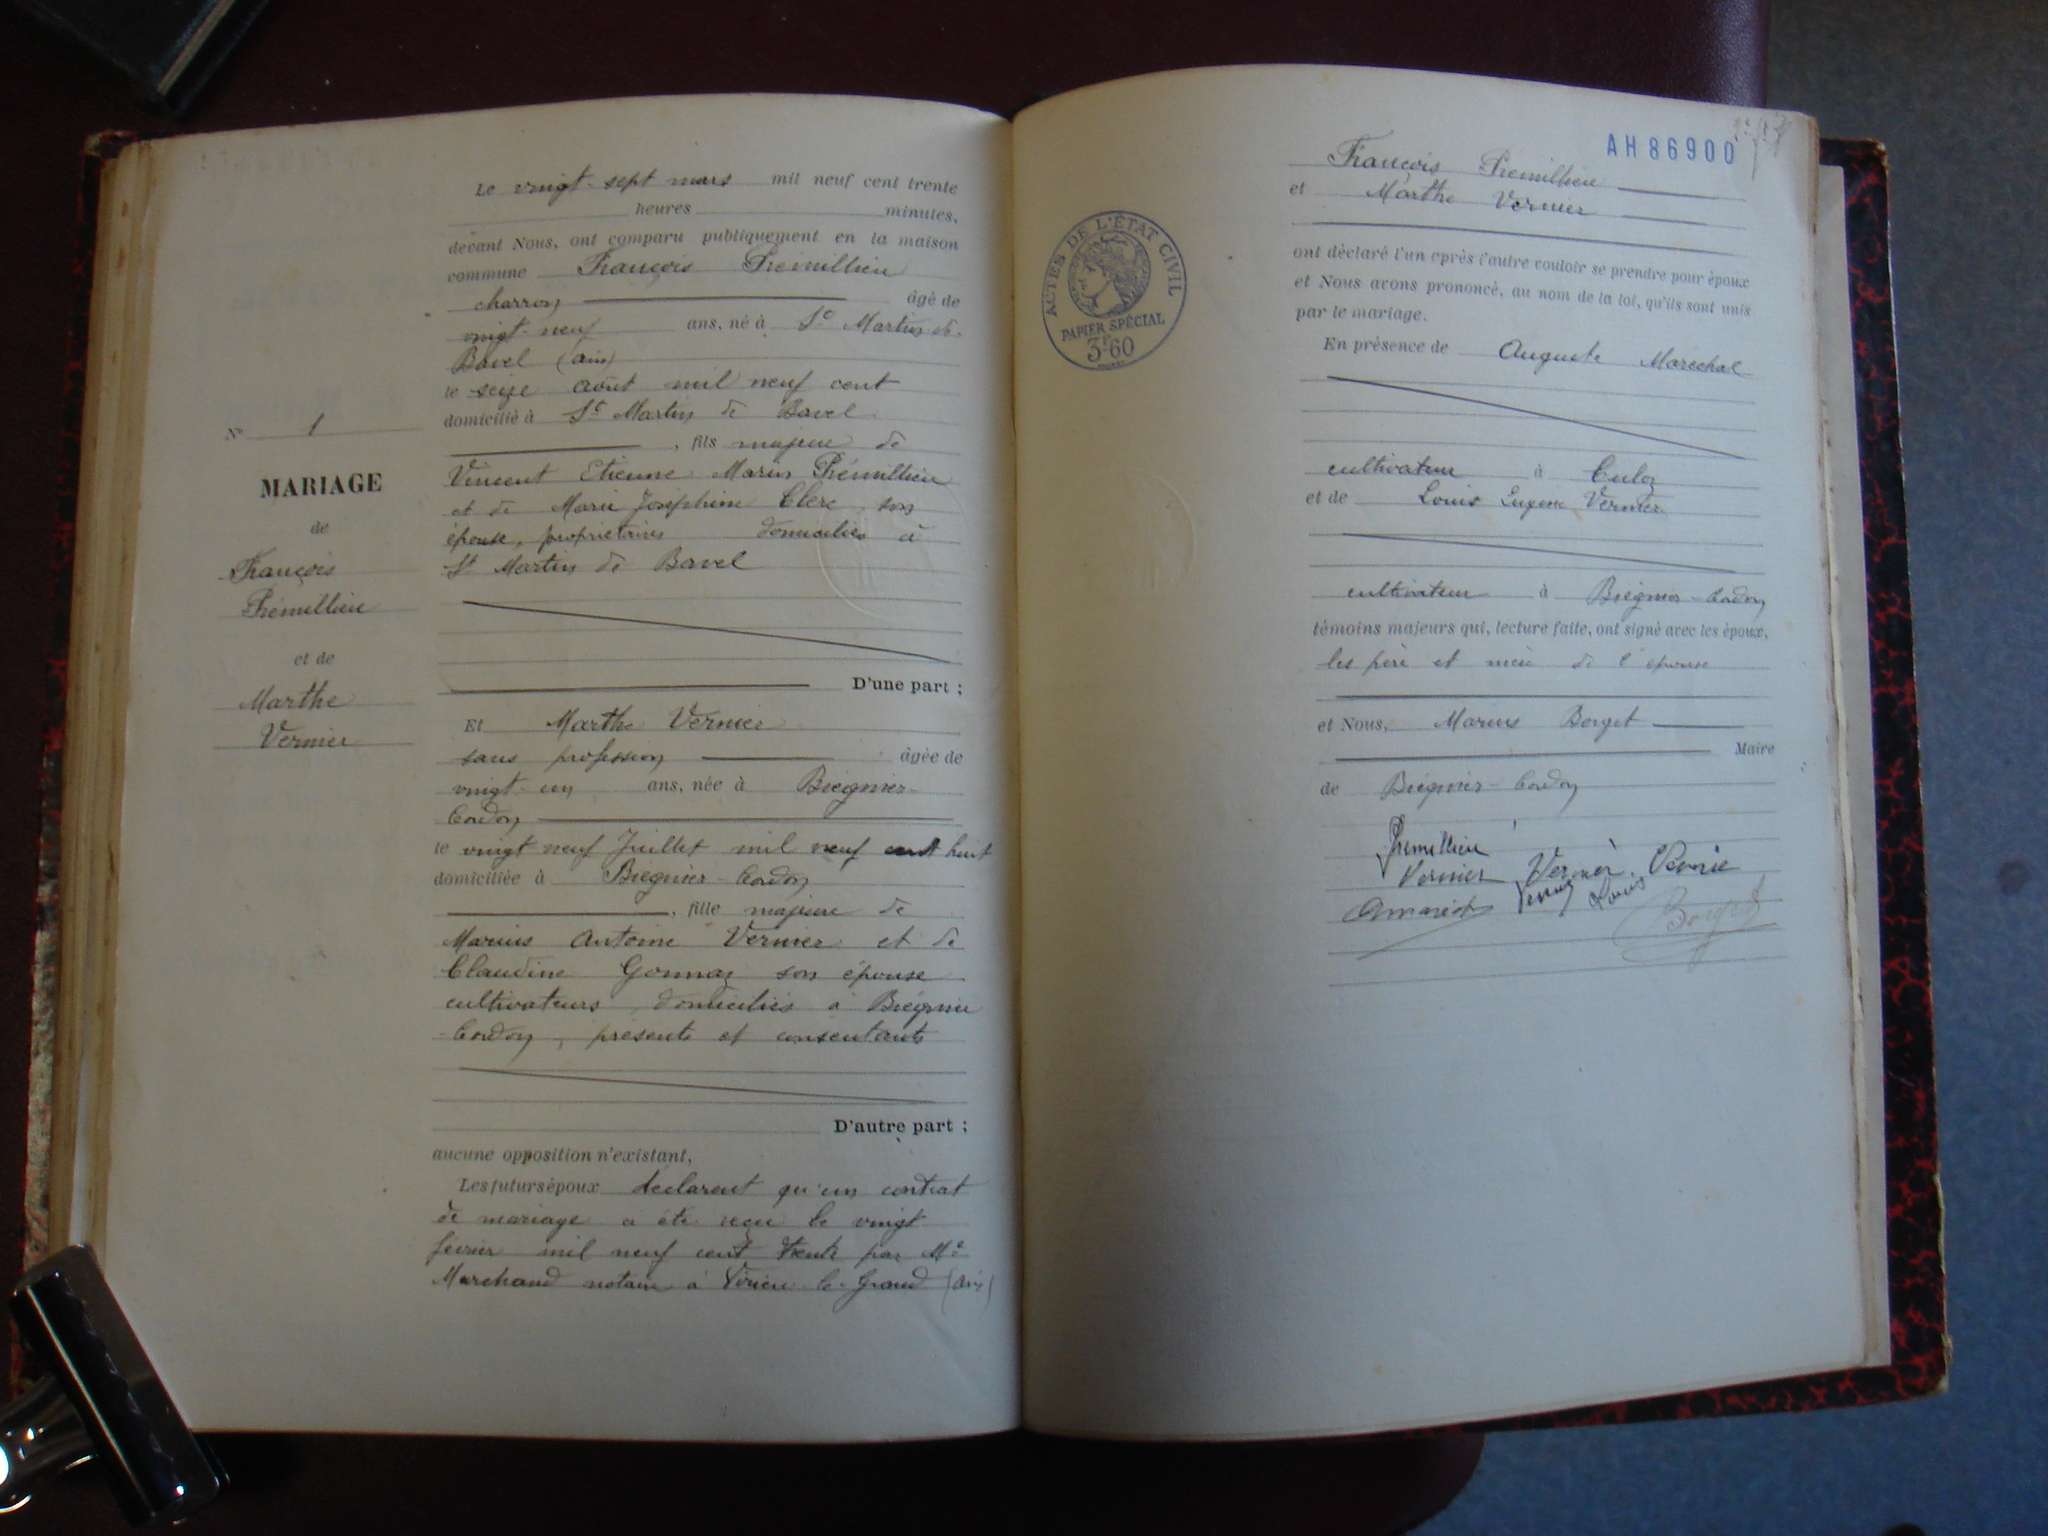 Le vingt-sept mars mil neuf cent trente
heures minutes,
devant Nous, ont comparu publiquement en la maison
commune François Prémillieu
charron âgé de
vingt-neuf ans, né à St Martin de
Bavel (Ain)
le seize août mil neuf cent
domicilié à St Martin de Bavel
, fils majeur de
Vincent Etienne Marin Prémillieu
et de Marie Joséphine Clerc, son
épouse, propriétaires domiciliés à
St Martin de Bavel
D'une part ;
Et Marthe Vernier
sans profession âgée de
vingt-un ans, née à Brégnier-
Cordon
le vingt neuf Juillet mil neuf cent huit
domiciliée à Brégnier-Cordon
, fille majeure de
Marius Antoine Vernier et de
Claudine Gonnaz son épouse
cultivateurs, domiciliés à Brégnier
-Cordon, présents et consentants
D'autre part ;
aucune opposition n'existant,
Les futurs époux déclarent qu'un contrat
de mariage a été reçu le vingt
février mil neuf cent trente par Me
Marchand notaire à Virieu-le-Grand (Ain)
No 1
MARIAGE
de
François
Prémillieu
et de
Marthe
Vernier
AH86900
François Prémillieu
et Marthe Vernier
ACTES DE L'ÉTAT CIVIL
PAPIER SPÉCIAL
3F60
ont déclaré l'un après l'autre vouloir se prendre pour époux
et Nous avons prononcé, au nom de la loi, qu'ils sont unis
par le mariage.
En présence de Auguste Maréchal
cultivateur à Culoz
et de Louis Eugène Vernier
cultivateur à Brégnier-Cordon
témoins majeurs qui, lecture faite, ont signé avec les époux,
les père et mère de l'épouse
et Nous, Marius Borget
Maire
de Brégnier-Cordon
Prémillieu
Vernier Vernier
Louis
Borget